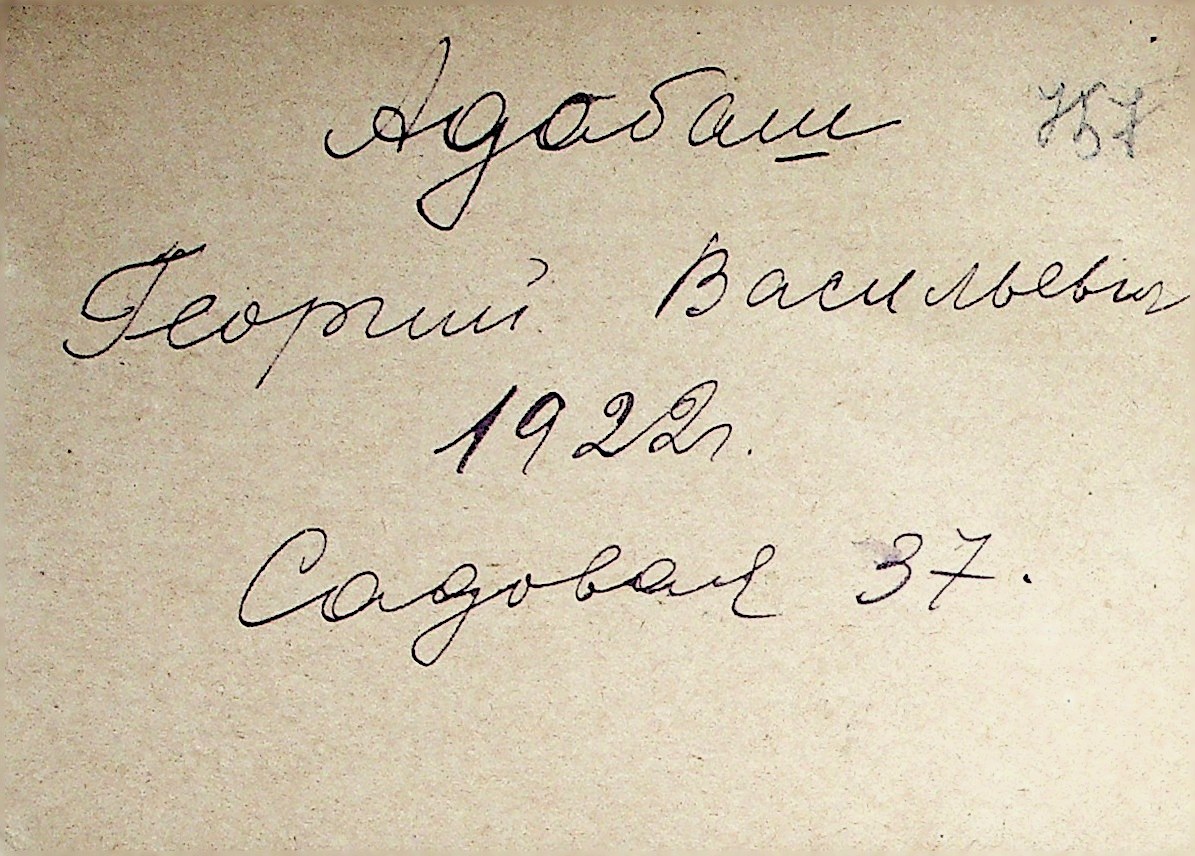 Адабаш
Георгий Васильевич
1922г.
Садовая 37.